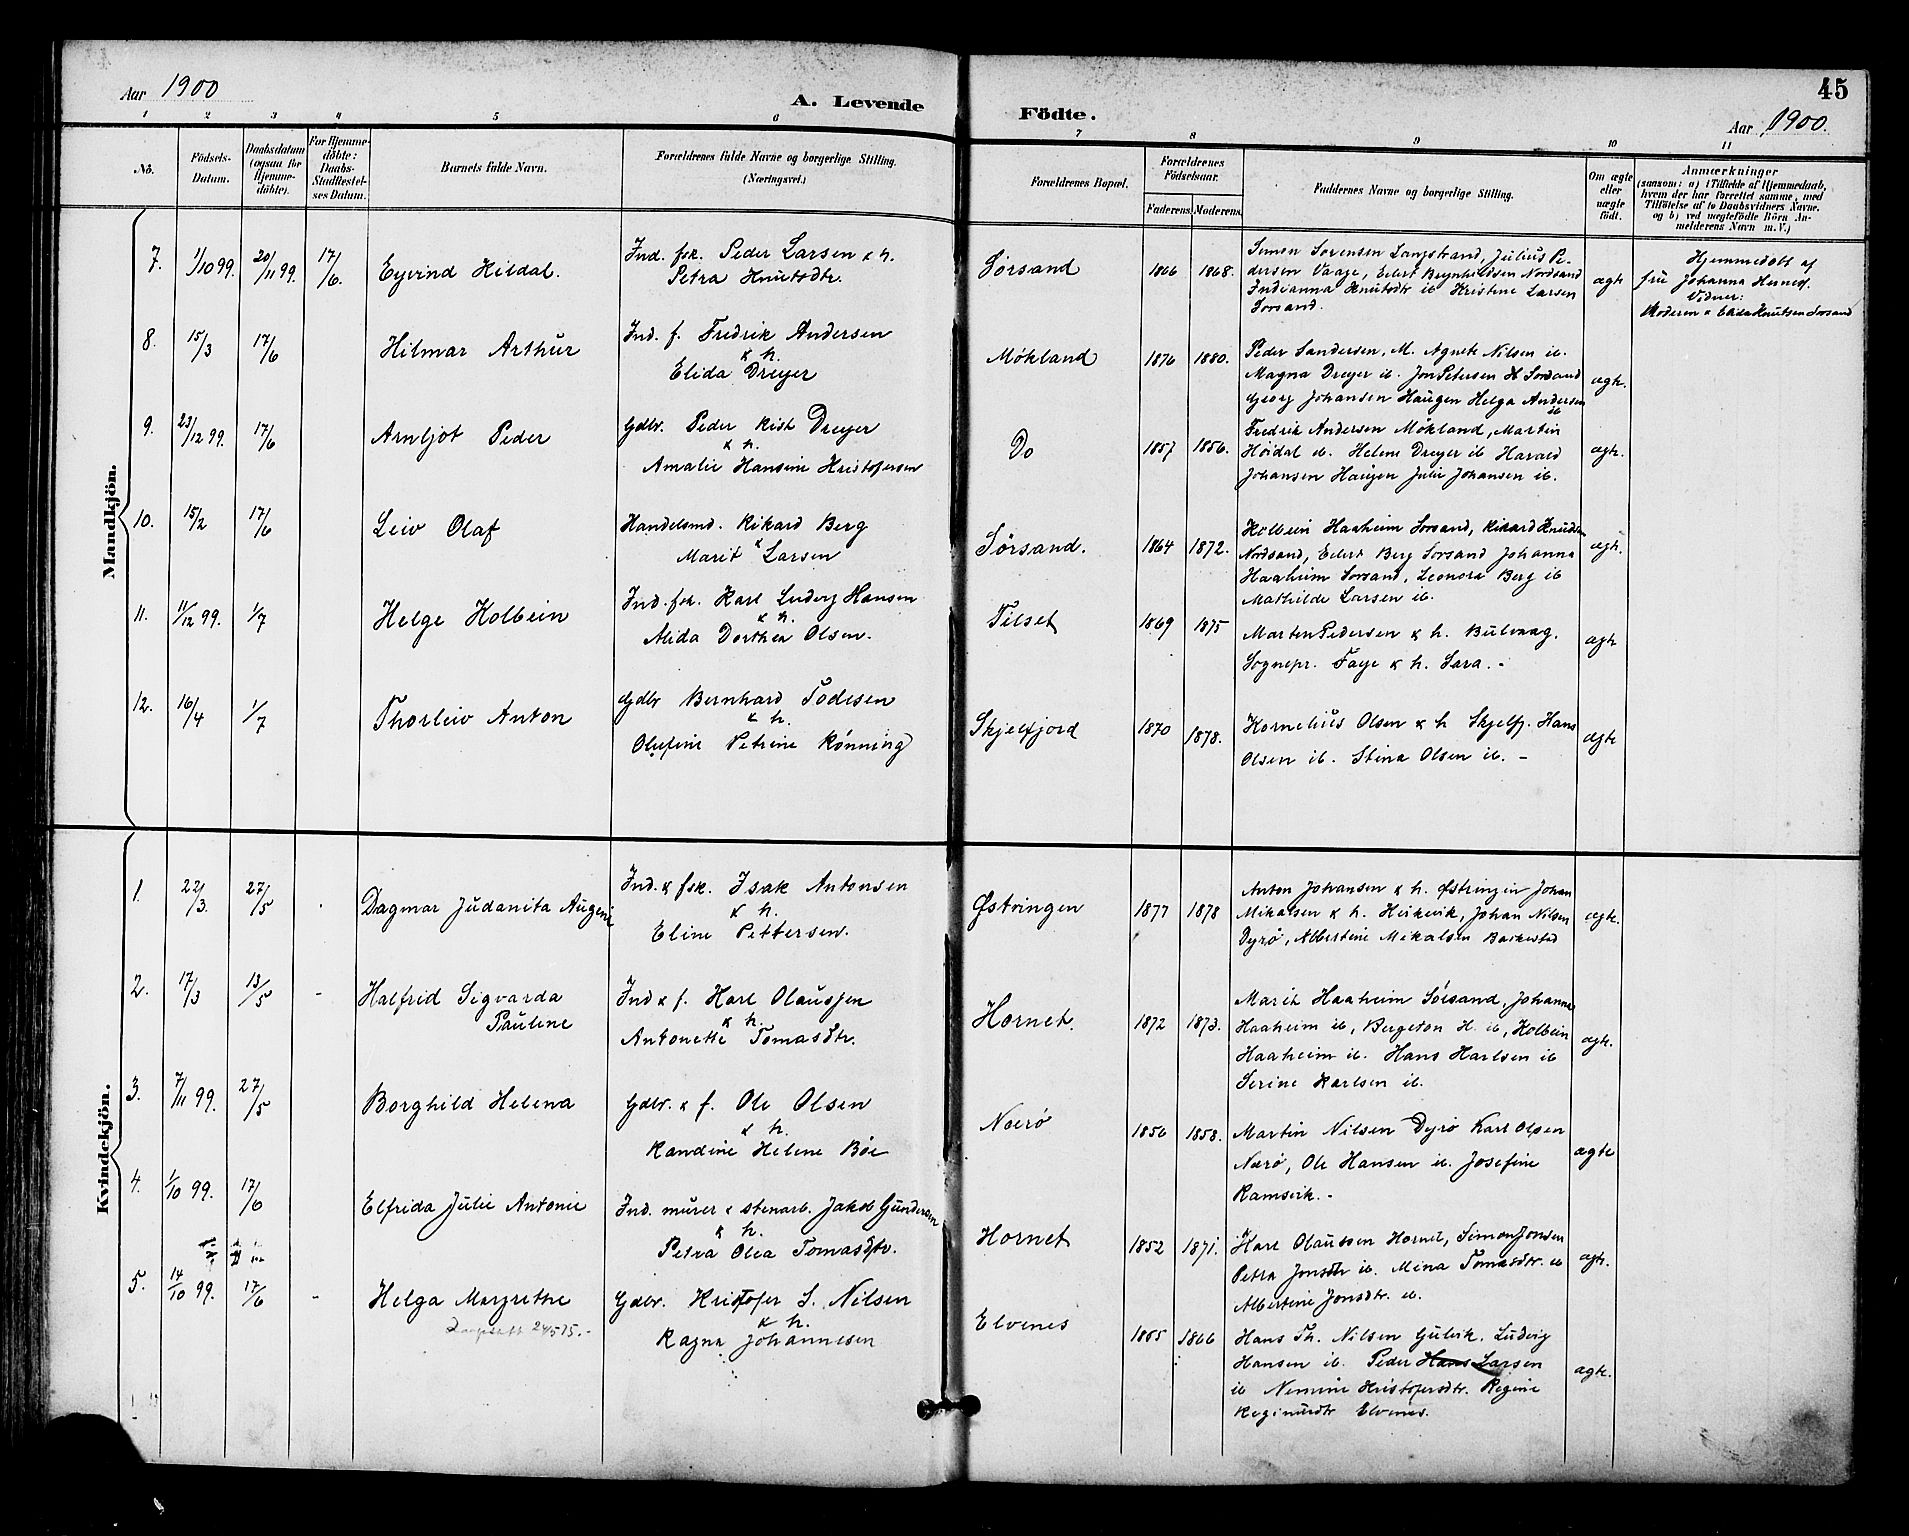 45
Aar 1900
A. Levende Födte.
Aar 1900.
1 2 3 4 5 6 7 8 9 10 11
No.
Fødsels-Datum.
Daabsdatum (ogsaa for Hjemmedöbte).
For Hjemmedöbte: Daabs-Stadfæstelses Datum.
Barnets fulde Navn.
Forældrenes fulde Navne og borgerlige Stilling. (Næringsvei.)
Forældrenes Bopæl.
Forældrenes Födselsaar.
Faderens. Moderens.
Faddernes Navne og borgerlige Stilling.
Om ægte eller uægte födt.
Anmærkninger
(saasom: a) i Tilfælde af Hjemmedaab, hvem der har forrettet samme, med Tilföielse af to Daabsvidners Navne, og b) ved uægtefödte Börn Anmelderens Navn m. V.)
Mandkjön.
7. 1/10 99. 20/11 99. 17/6. Eyvind Hildal.
Ind. fsk. Peder Larsen & h.
Petra Knutsdtr.
Sørsand 1866 1868.
Simon Sorensen Langstrand, Julius Pe-
dersen Vaage, Eilert Brynhildsen Nordsand
Indianna Knutsdtr ib Kristine Larsen
Sorsand.
ægte
Hjemmedøbt af
fru Johanna
Vidner:
Moderen & Elida Knutsen Sorsand
8. 15/3 17/6 Hilmar Arthur
Ind. f. Fredrik Andersen
& h.
Elida Dreyer
Møkland 1876 1880.
Peder Sandersen, M. Agnete Nilsen ib.
Magna Dreyer ib. Jon Petersen H Sorsand
Georg Johansen Haugen Helga Andersen
ib
ægte.
9. 23/12 99. 17/6 Arnljot Peder
Gdbr. Peder Kist Dreyer
& h.
Amalie Hansine Kristofersen
Do 1857 1856.
Fredrik Andersen Møkland, Martin
Høidal ib. Helene Dreyer ib Harald
Johansen Haugen Julie Johansen ib.
ægte.
10. 15/2 17/6 Leiv Olaf
Handelsmd. Rikard Berg
&
Marit Larsen
Sørsand. 1864 1872.
Holbein Haaheim Sorsand, Rikard Knudsen
Nordsand, Eilert Berg Sorsand Johanna
Haaheim Sorsand, Leonora Berg ib
Mathilde Larsen ib.
ægte.
11. 11/12 99. 1/7 Helge Holbein
Ind. fsk. Karl Ludvig Hansen
& h.
Alida Dorthea Olsen.
Tilset 1869 1875
Marten Pedersen & h. Bulvaag.
Sognepr. Faye & h. Sara. -
ægte
12. 16/4 1/7 Thorleiv Anton
Gdbr Bernhard Todesen
& h.
Olufine Petrine Rønning
Skjelfjord 1870 1878.
Kornelius Olsen & h Skjelfj. Hans
Olsen ib. Stina Olsen ib. -
ægte
Kvindekjön.
1. 22/3. 27/5 Dagmar Judanita Augeni
Ind. & fsk. Isak Antonsen
& h.
Eline Pettersen.
Østringen 1877 1878
Anton Johansen & h. Østringen Johan
Mikalsen & h. Heikevik, Johan Nilsen
Dyrø, Albertine Mikalsen Barkestad
ægte.
2. 17/3 13/5 - Halfrid Sigvarda
Pauline
Ind & f. Karl Olaussen
& h.
Antonette Tomasdtr.
Hornet. 1872 1873.
Marit Haaheim Sørsand, Johanna
Haaheim ib, Bergeton H. ib, Holbein
Haaheim ib. Hans Karlsen ib
Serine Karlsen ib.
ægte.
3. 7/11 99. 27/5 Borghild Helena
Gdbr. & f. Ole Olsen
& h.
Randine Helene Bøe
Nærø 1856 1858.
Martin Nilsen Dyrø Karl Olsen
Nærø, Ole Hansen ib. Josefine
Ramsvik. -
ægte
4. 1/10 99. 17/6 Elfrida Julie Antonie
Ind. murer & stenarb. Jakob Gundersen
& h.
Petra Olea Tomasdtr.
Hornet 1852 1871.
Karl Olaussen Hornet, Simon Jonsen
Petra Jonsdtr ib. Mina Tomasdtr. ib
Albertine Jonsdtr. ib.
ægte.
5. 14/10 99. 17/6 - Helga Margrethe
Gdbr. Kristofer S. Nilsen
& h.
Ragna Johannesen
Elvenes 1865 1866
Hans Th. Nilsen Gulvik. Ludvig
Hansen ib. Peder Hans Larsen
ib Nemine Kristofersdtr. Regine
Reginusdtr Elvenes.
ægte.